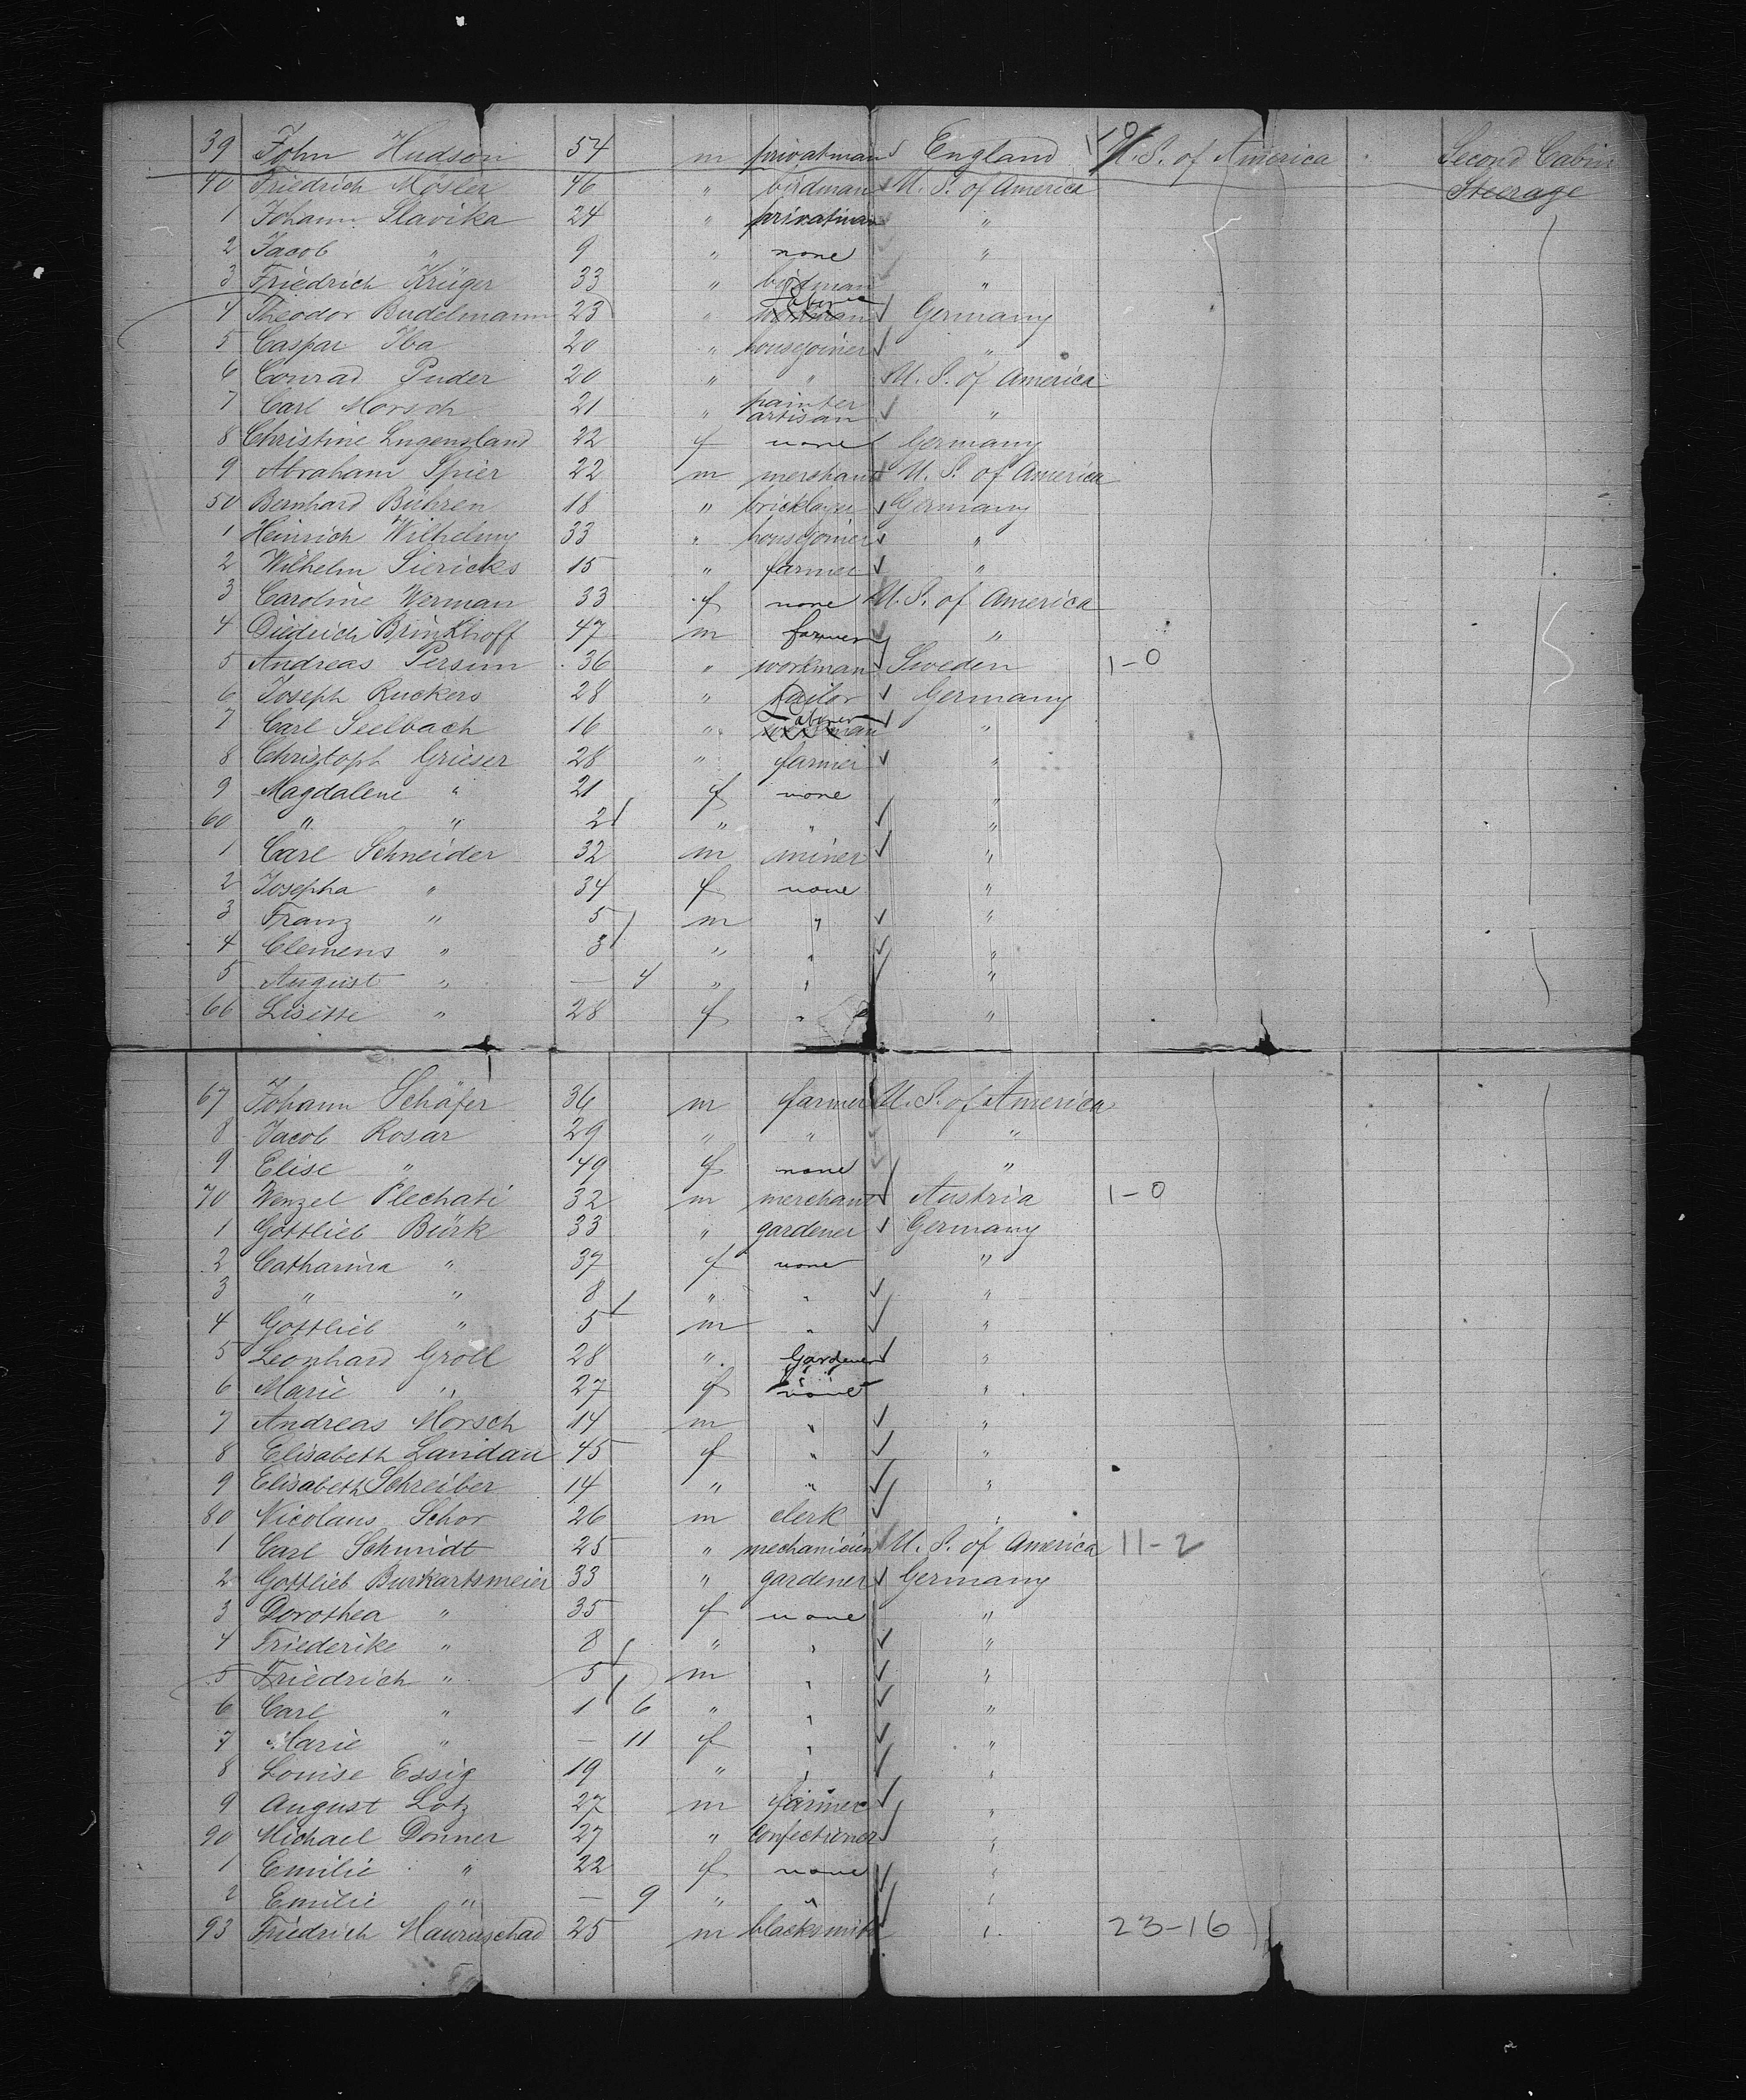 39 John Hudson 54 m privatman England U. S. of America Second Cabin
40 Friedrich Mösler 46 " birdman U. S. of America Steerage
1 Johann Slavika 24 " privatman "
2 Jacob " 9 " none "
3 Friedrich Krüger 33 " birdman "
4 Theodor Budelmann 23 " Laborer workman Germany
5 Caspar Iba 20 " housejoiner "
6 Conrad Puder 20 " " U. S. of America
7 Carl Morsch 21 " painter artisan "
8 Christine Lugensland 22 f none Germany
9 Abraham Spier 22 m merchant U. S. of America
50 Bernhard Bühren 18 " bricklayer Germany
1 Heinrich Wilhelmy 33 " housejoiner "
2 Wilhelm Siericks 15 " farmer "
3 Caroline Werman 33 f none U. S. of America
4 Diedrich Brinkhoff 47 m farmer "
5 Andreas Persinn 36 " workman Sweden 1-0
6 Joseph Ruckers 28 " tailor Germany
7 Carl Seelbach 16 " Laborer workman "
8 Christoph Grieser 28 " farmer "
9 Magdalene " 21 f none "
60 " " 2 " " "
1 Carl Schneider 32 m miner "
2 Josepha " 34 f none "
3 Franz " 5 m " "
4 Clemens " 3 " " "
5 August " — 4 " " "
66 Lisette " 28 f " "
67 Johann Schäfer 36 m farmer U. S. of America
8 Jacob Rosar 29 " " "
9 Elise " 49 f none "
70 Wenzel Plechati 32 m merchant Austria 1-0
1 Gottlieb Bürk 33 " gardener Germany
2 Catharina " 37 f none "
3 " " 8 " " "
4 Gottlieb " 5 m " "
5 Leonhard Groll 28 " Gardener "
6 Marie " 27 f none "
7 Andreas Morsch 14 m " "
8 Elisabeth Landau 45 f " "
9 Elisabeth Schreiber 14 " " "
80 Nicolaus Schor 26 m clerk "
1 Carl Schmidt 25 " mechanicien U. S. of America 11-2
2 Gottlieb Burkartsmeier 33 " gardener Germany
3 Dorothea " 35 f none "
4 Friederike " 8 " " "
5 Friedrich " 5 m " "
6 Carl " 1 6 " " "
7 Marie " — 11 f " "
8 Louise Essig 19 " " "
9 August Lotz 27 m farmer "
90 Michael Donner 27 " confectioner "
1 Emilie " 22 f none "
2 Emilie " — 9 " " "
93 Friedrich 25 m blacksmith " 23-16